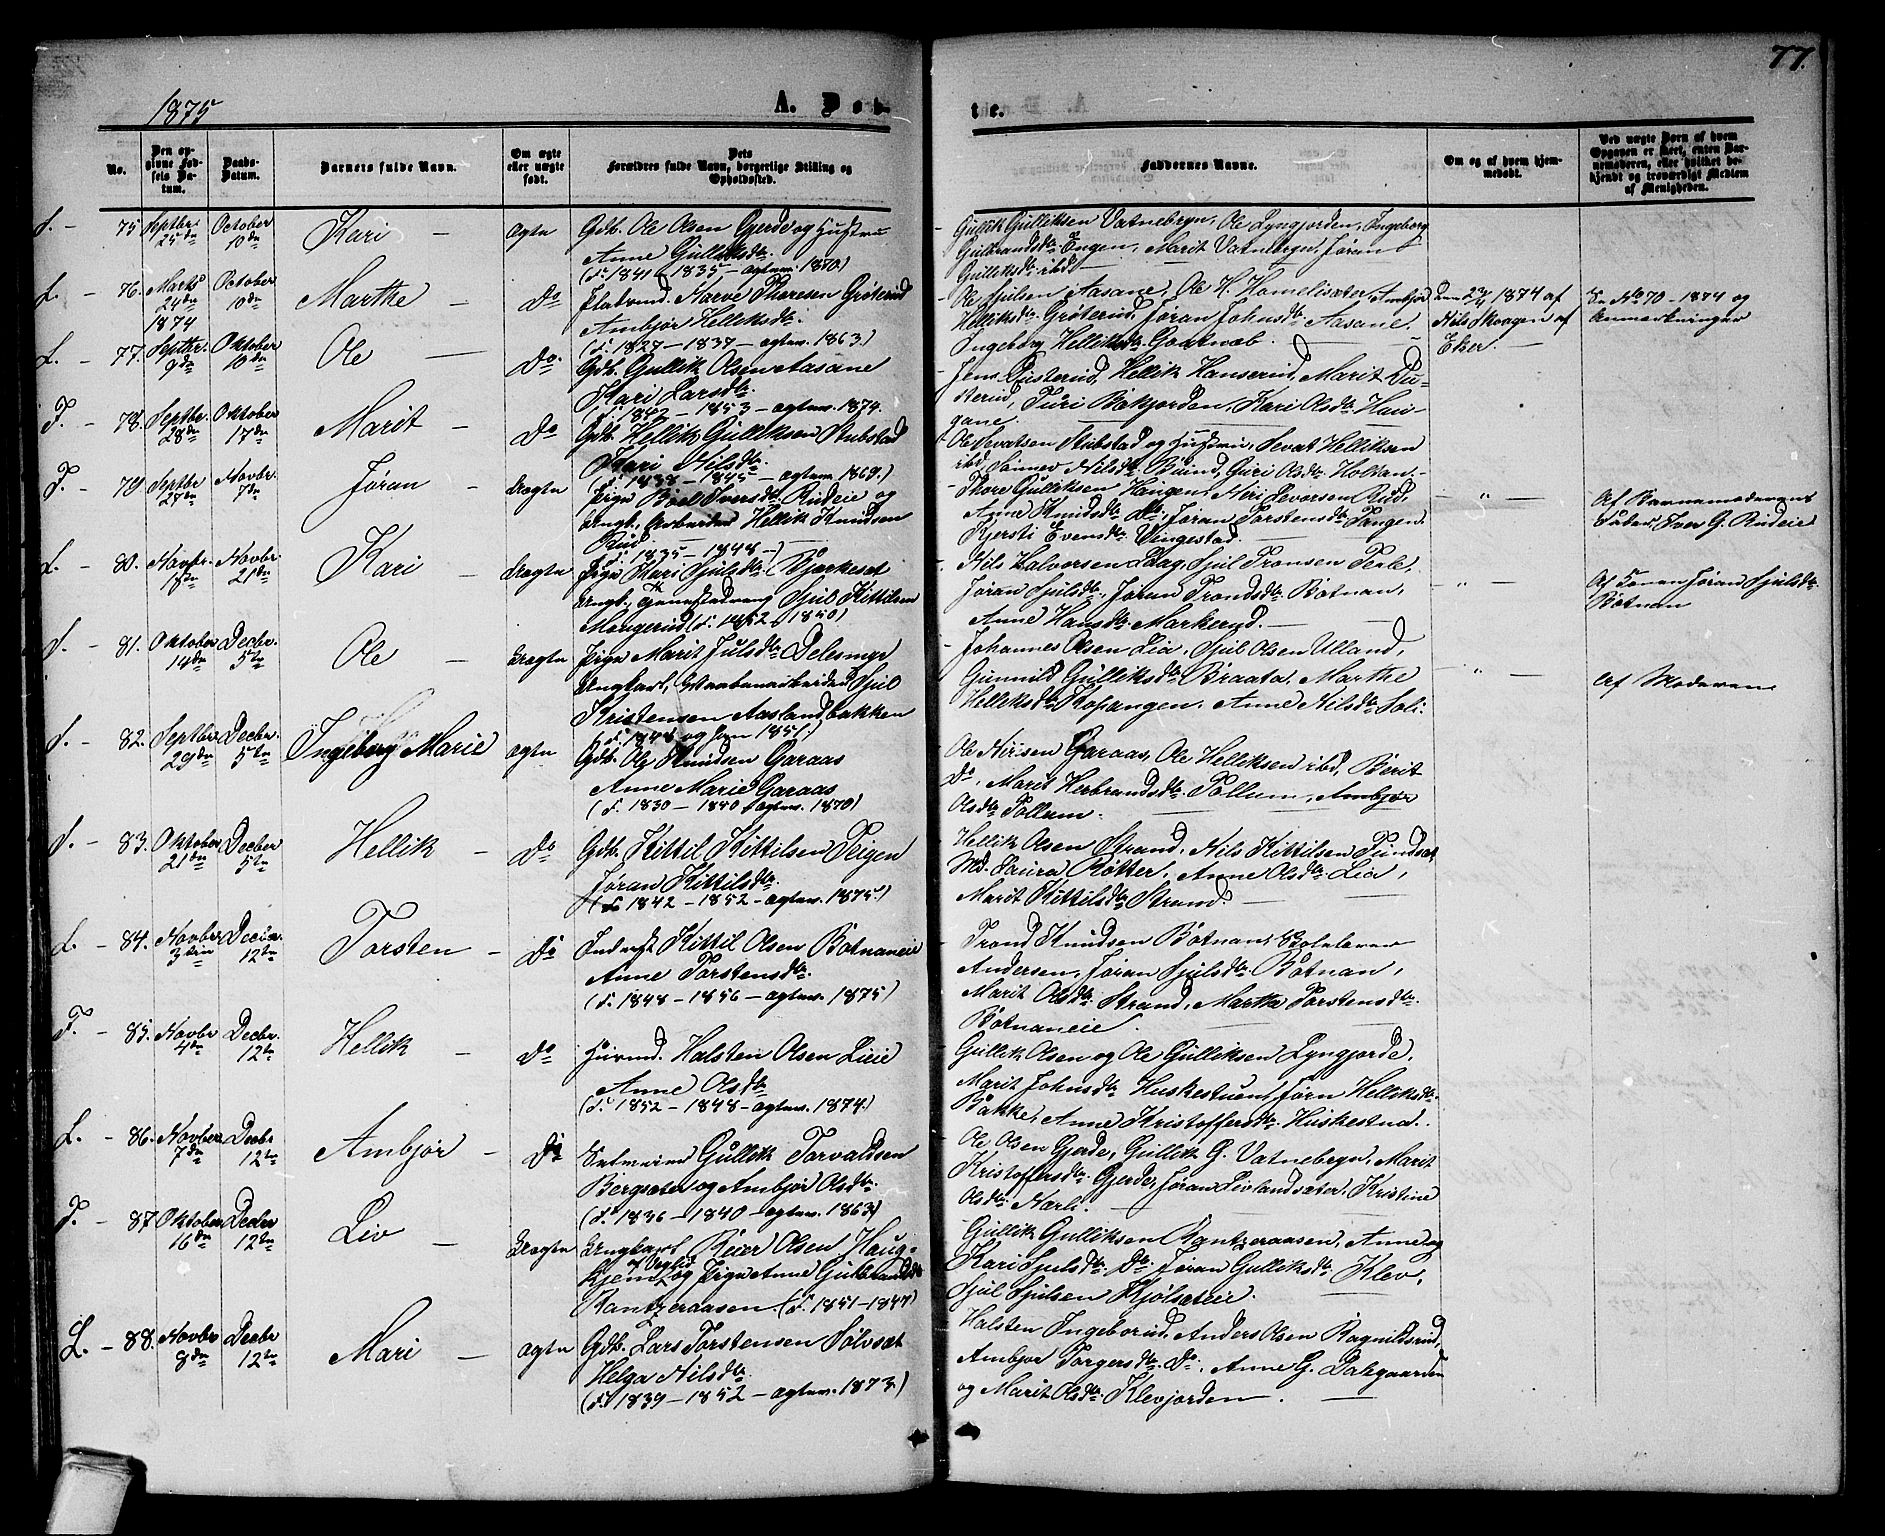 77.
1875
A. Døb-
te.
No.
Den op-
givne Fød-
sels Da-
tum.
Daabs-
Datum.
Barnets fulde Navn.
Om ægte
eller uægte
født.
Dets
Forældres fulde Navn, borgerlige Stilling og
Opholdssted.
Faddernes Navne.
Om og af hvem hjem-
medøbt.
Ved uægte Børn af hvem
Opgaven er skeet, enten Bar-
nemoderen, eller hvilket be-
kjendt og troværdigt Medlem
af Menigheden.
75 Septbr. 25de October 10de Kari - ægte
Gdb. Ole Olsen Gjerde og Hustru
Anne Gulliksdtr.
(f. 1841 - 1835 - ægtev. 1870.)
Gullik Gulliksen Vatnebryn, Ole Lyngjorden, Ingeborg
Gulbrandsdtr. Engen, Marit Vatnebryn, Jøran
Gulliksdtr. ibd.
L. - 76. Marts 24de 1874 October 10de Marthe - Do
Narve Thoresen Grøterud
Ambjør Helleksdtr.
(f. 1827 - 1837 - ægtev. 1863.)
Ole Sjulsen Aasane, Ole H. Homelisæter, Ambjør
Helliksdtr. Grøterud, Jøran Johnsdtr. Aasane,
Ingeborg Helliksdtr.
1874 af
Nils Skaagen af
Eker. -
No 70 - 1874 og
Anmærkninger
L. - 77. Septbr. 9de Oktober 10de Ole - Do.
Gdb. Gullik Olsen Aasane
Kari Larsdtr.
(f. 1842 - 1853 - ægtev. 1874.
Jens Dusterud, Hellik Hanserud, Marit Du-
sterud, Turi Bakjorden, Kari Olsdtr. Hau-
gane.
F. - 78. Septbr. 28de Oktober 17de Marit - Do
Gdb. Hellik Gulliksen Stubstad
Kari Nilsdtr.
(f. 1838 - 1845 - ægtev. 1869.)
Ole Sevatsen Stubstad og Hustru, Sevat Helliksen
ibd, Sønnev Nilsdtr. Buind, Guri Olsdtr. Holtan.
F. - 79 Septbr 27de Novbr. 7de Jøran - Uægte
Pige Boel Iversdtr. Rudeie og
Ungk. Arbeider Hellik Knudsen
Rud
(f. 1835 - 1848 -)
Thore Gulliksen Haugen, Niri Seversen Rud,
Anne Knudsdtr. Do, Jøran Torstensdtr. Tangen
Kjersti Evensdtr. Vingestad.
- " -
Af Barnemoderens
Fader, Iver G. Rudeie
L. - 80. Novbr. 1ste Novbr. 21de Kari - Uægte
Pige Kari Sjulsdtr. Bjørkeset
Ungk. Sjul Kittilsen
Maugerud (f. 1852 - 1850)
Nils Halvorsen Dag, Sjul Tronsen Perle,
Jøran Sjulsdtr., Jøran Trondsdtr. Bøtnan,
Anne Hansdtr. Markerud.
- " -
Af Jøran Sjulsdtr.
Bøtnan
81. Oktober 14de Decbr. 5te Ole - Uægte
Pige Marit Julsdtr.
Ungkarl, Sjul
Kristensen Aaslandbakken
(f. 1848 og hun 1851.)
Johannes Olsen Lia, Sjul Olsen Ulland,
Gunnild Gulliksdtr. Braata, Marthe
Helleksdtr. Kopangen, Anne Nilsdtr. Soli.
- " -
Af Moderen
82. Septbr. 29de Decbr. 5te Ingeborg Marie ægte
Gdb. Ole Knudsen Garaas
Anne Marie Garaas
(f. 1830 - 1840 ægtev. 1870)
Ole Nirisen Garaas, Ole Helleksen ibd, Berit
Do, Marit Herbrandsdtr. Tollum, Ambjør
Olsdtr. Tollum.
83. Oktober 21de Decbr 5te Hellik - Do
Gdb. Kittil Kittilsen Teigen
Jøran Kittilsdtr.
(f. 1842 - 1852 - ægtev. 1875.)
Hellik Olsen Strand, Nils Kittilsen Tundsæt
Md. Laura Rotter, Anne Olsdtr. Lia,
Marit Kittilsdtr. Strand.
L. - 84. Novbr. 3die Decbr. 12te Torsten - Do
Inderst Kittil Olsen Bøtnaneie
Anne Torstensdtr.
(f. 1848 - 1856 - ægtev. 1875)
Trond Knudsen Bøtnan,
Andersen, Jøran Sjulsdtr. Bøtnan,
Marit Olsdtr. Strand, Martha Torstensdtr.
Bøtnaneie.
F. - 85. Novbr 4de Decbr. 12te Hellik - Do
Huusmd. Halsten Olsen Lieie
Anne Olsdtr
(f. 1852 - 1848 - ægtev. 1874.)
Gullik Olsen og Ole Gulliksen Lyngjorde,
Marit Johnsdtr. Huskestuen, Jørn Helliksdtr.
Bakke, Anne Kristoffersdtr. Huskestua.
L. - 86. Novber 7de Decbr 12te Ambjør - Do
Gullik Torvaldsen
Bergsæter og Ambjør Olsdtr.
(f. 1836 - 1840 - ægtev. 1863)
Ole Olsen Gjerde, Gullik G. Vatnebryn, Marit
Kristoffersdtr. Gjerde, Jøran Livlandsæter, Kristine
Olsdtr. Nærli.
F. - 87 Oktober 16de Decbr 12te Liv - Uægte
Ungkarl Reier Olsen Haug-
hjem af Veglid og Pige Anne Gulbrandsdtr
Rantzeraasen. (f. 1851 - 1847)
Gullik Gulliksen Rantzeraasen, Anne og
Kari Sjulsdtr. Do. Jøran Gulliksdtr. Klev,
Sjul Sjulsen Kjølsæteie.
L. - 88. Novbr 8de Decbr 12te Mari - ægte
Gdb. Lars Torstensen Sølvsæt
Helga Nilsdtr.
(f. 1839 - 1852 - ægtev. 1873.)
Halsten Ingeborud, Anders Olsen Ragnildsrud,
Ambjør Torgersdtr. Do, Anne G. Dalsgaarden
og Marit Olsdtr. Klevjorden.